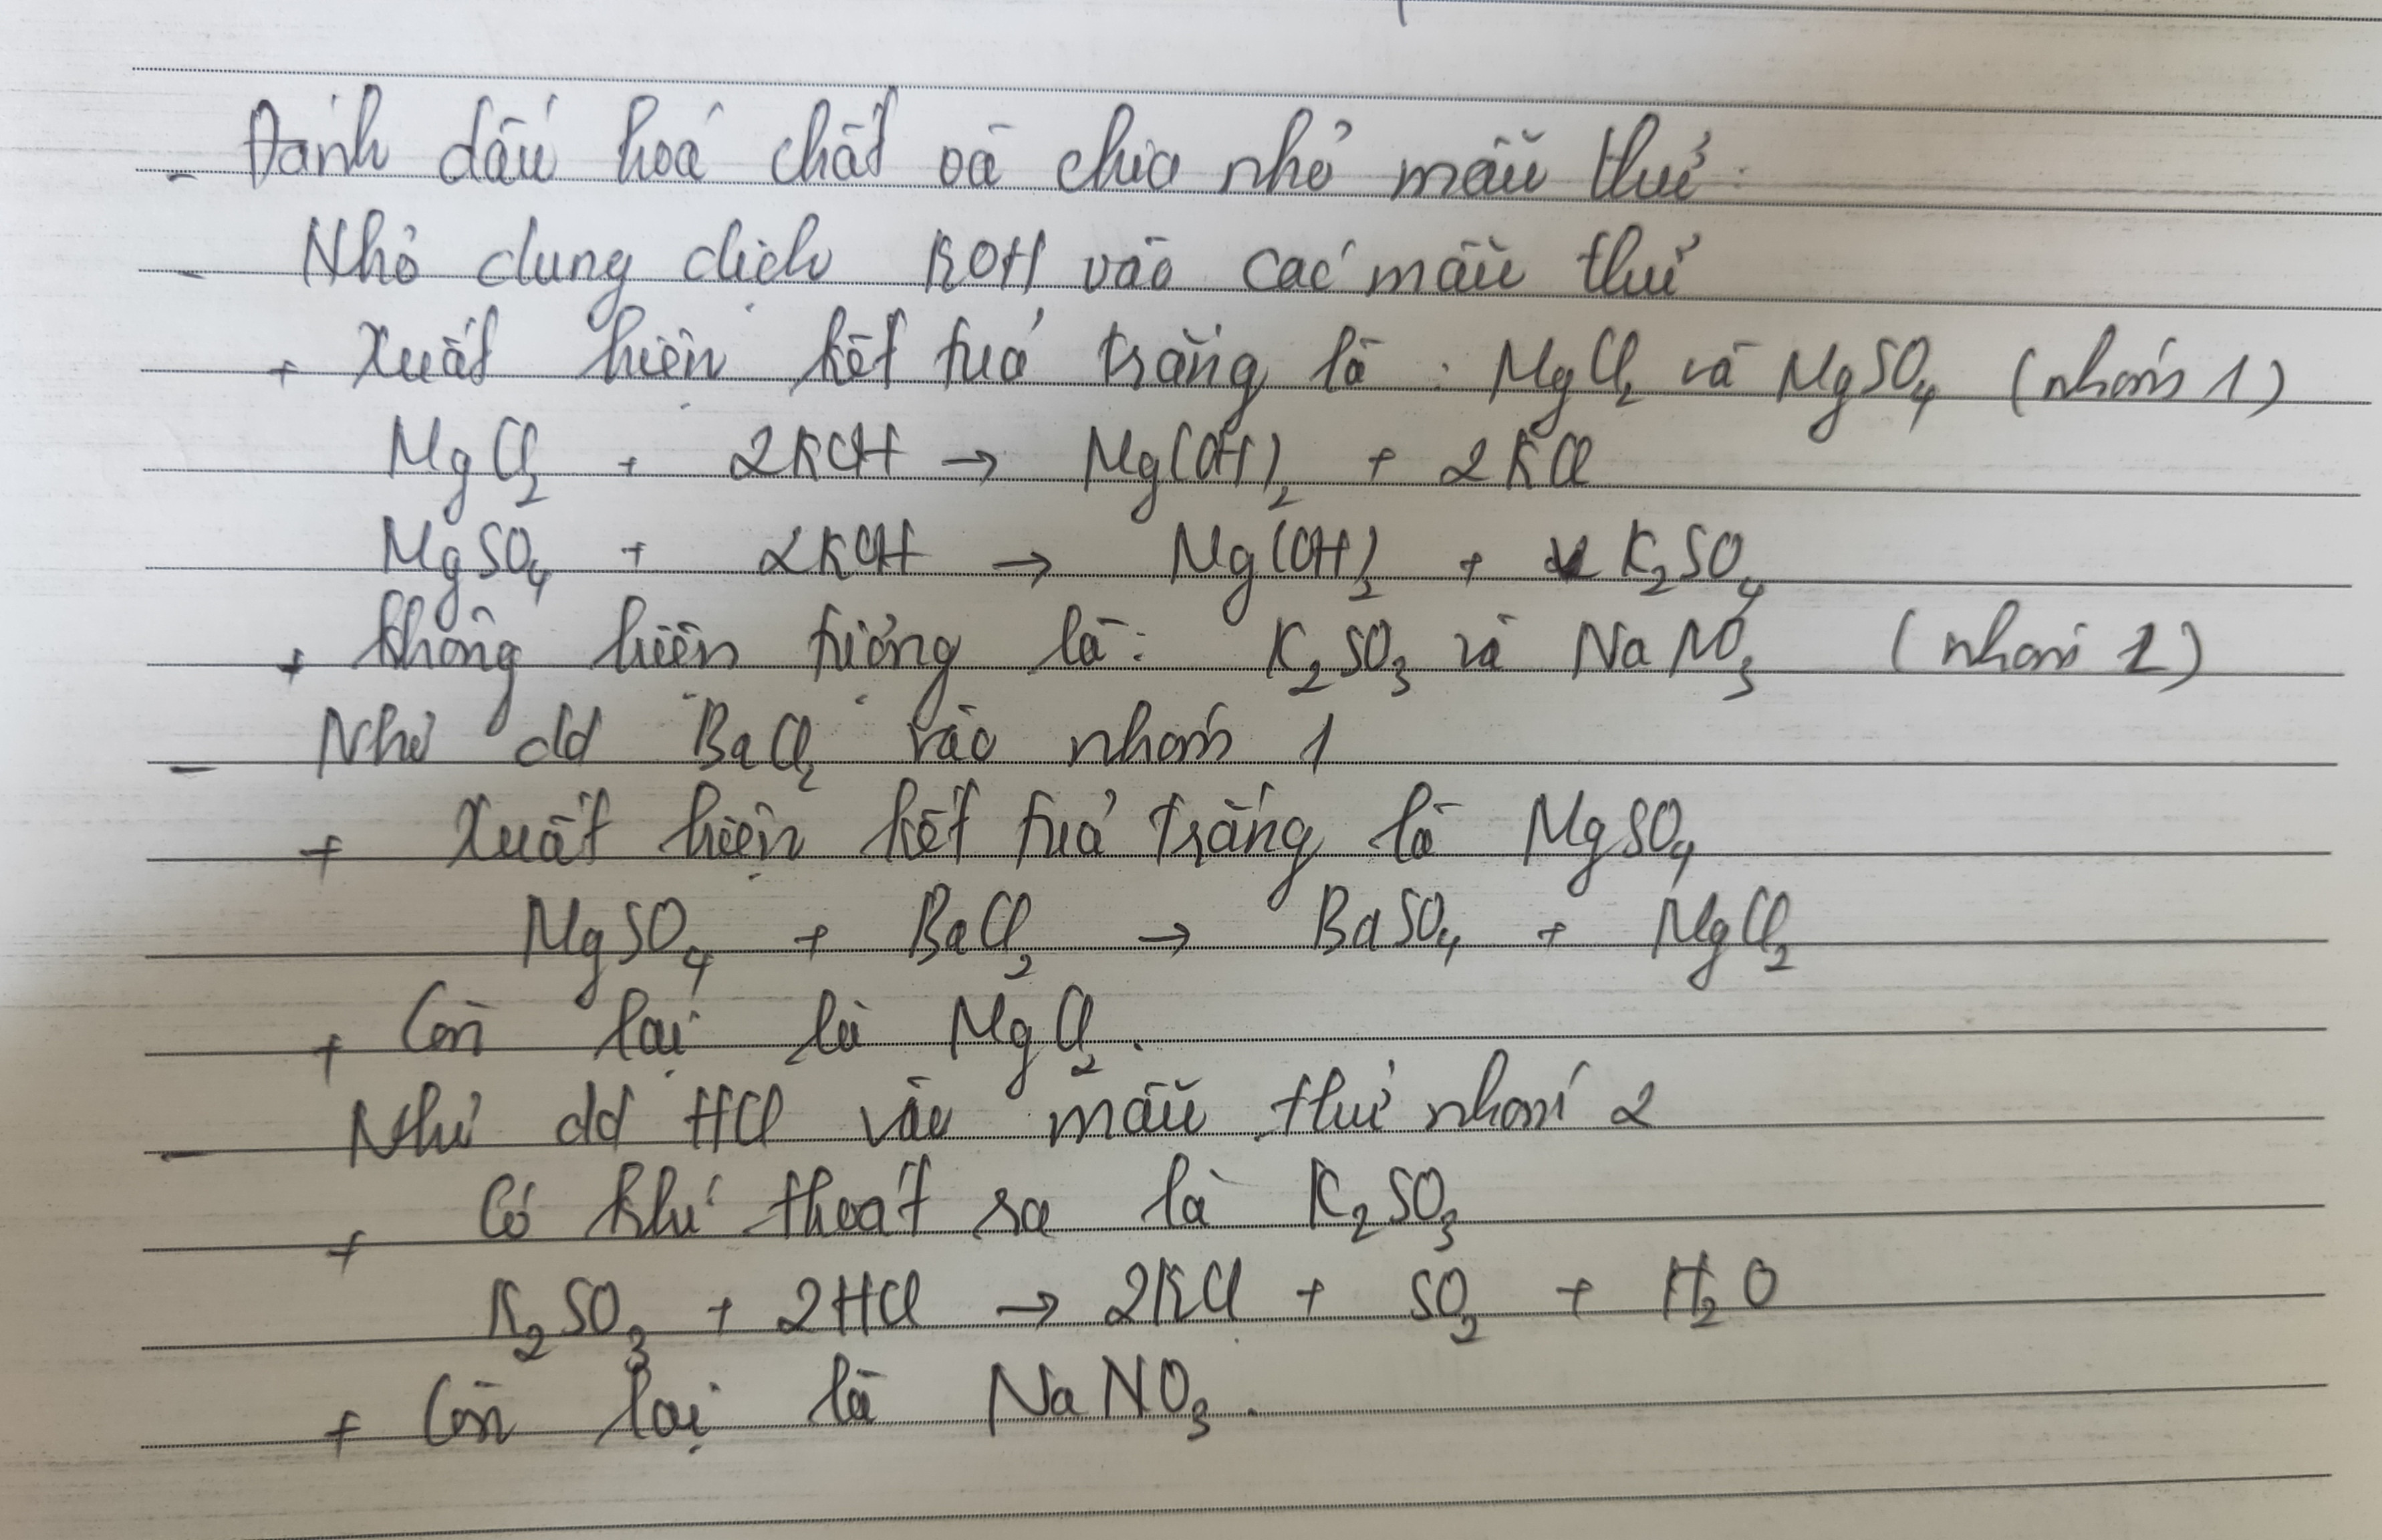 - Đánh dấu hoá chất và chia nhỏ mẫu thử.
- Nhỏ dung dịch KOH vào các mẫu thử
+ Xuất hiện kết tủa trắng là : MgCl₂ và MgSO₄ (nhóm 1)
MgCl₂ + 2KOH → Mg(OH)₂ + 2KCl
MgSO₄ + 2KOH → Mg(OH)₂ + K₂SO₄
+ không hiện tượng là: K₂SO₃ và NaNO₃ (nhóm 2)
- Nhỏ dd BaCl₂ vào nhóm 1
+ Xuất hiện kết tủa trắng là MgSO₄
MgSO₄ + BaCl₂ → BaSO₄ + MgCl₂
+ Còn lại là MgCl₂.
- Nhỏ dd HCl vào mẫu thử nhóm 2
+ Có khí thoát ra là K₂SO₃
K₂SO₃ + 2HCl → 2KCl + SO₂ + H₂O
+ Còn lại là NaNO₃.